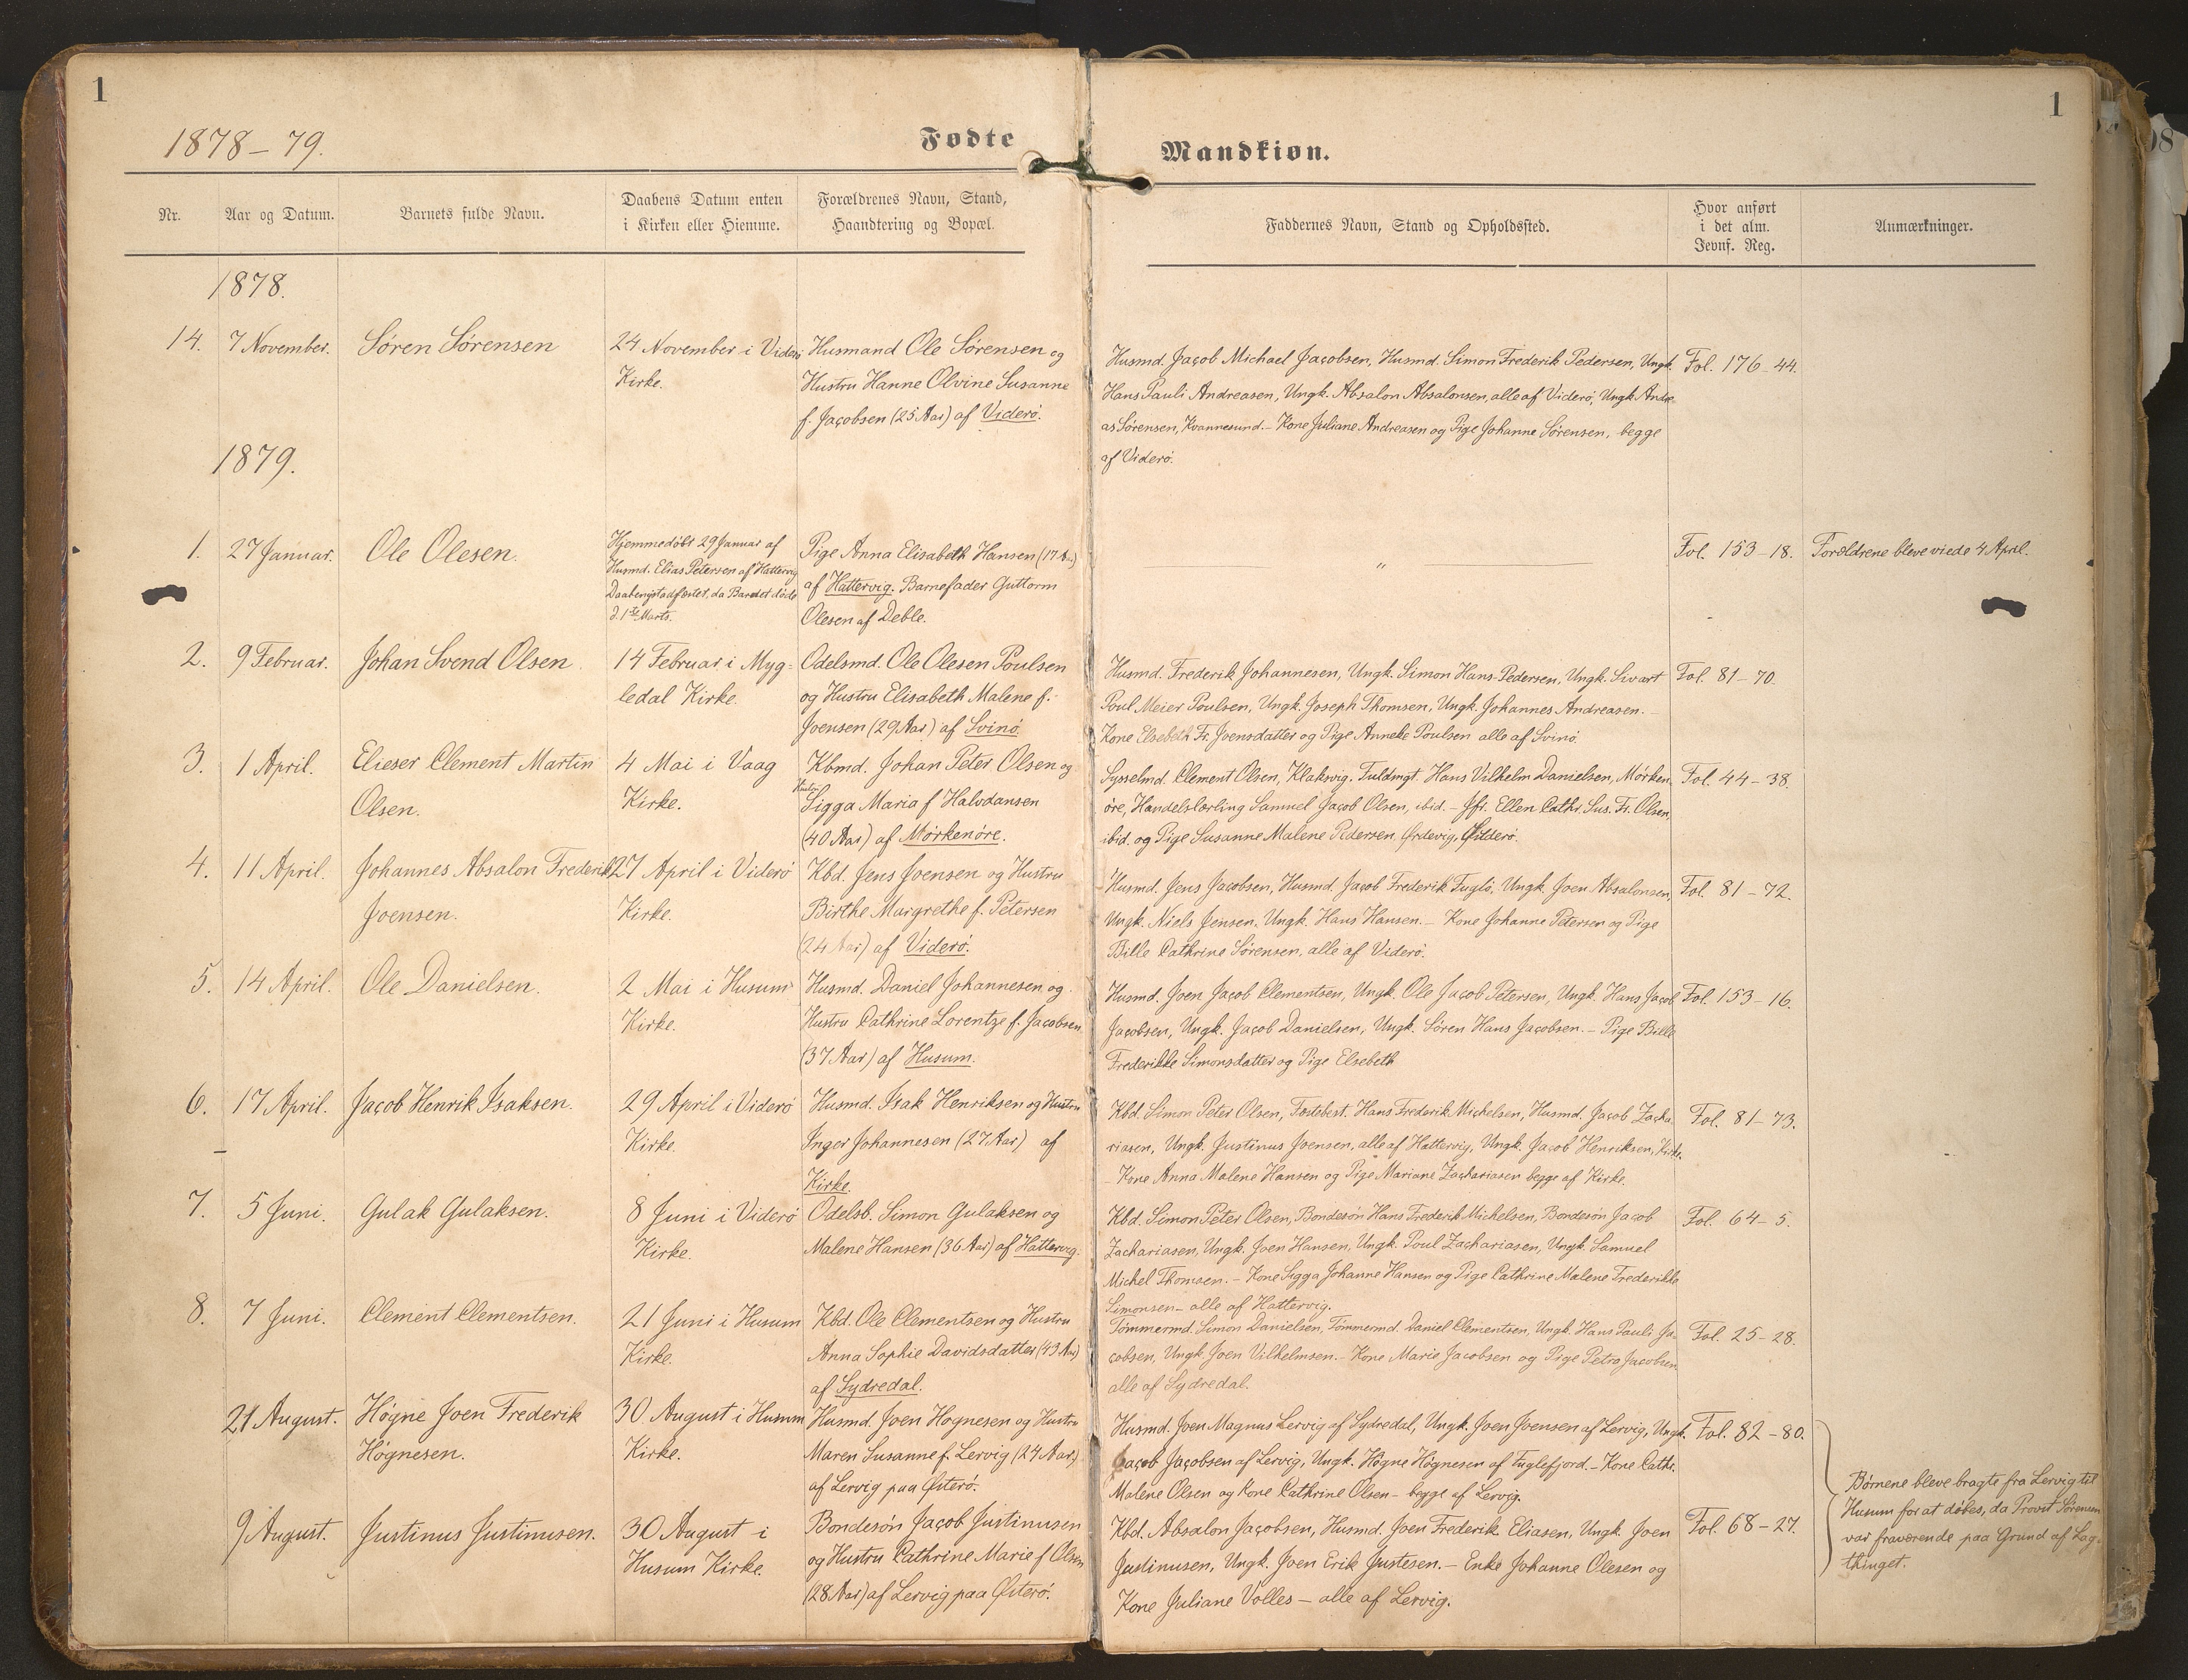 1
1
1878-79.
Fødte
Mandkiøn.
Nr.
Aar og Datum.
Barnets fulde Navn.
Daabens Datum enten
i Kirken eller Hiemme.
Forældrenes Navn, Stand,
Haandtering og Bopæl.
Faddernes Navn, Stand og Opholdssted.
Hvor anført
i det alm.
Jevnf. Reg.
Anmærkninger.
1878.
14. 7 November.
Søren Sørensen
24 November i Viderø
Kirke.
Husmand Ole Sørensen og
Hustru Hanne Olvine Susanne
f. Jacobsen (25 Aar) af Viderø.
Husmd. Jacob Michael Jacobsen, Husmd. Simon Frederik Pedersen, Ungk.
Hans Pauli Andreasen, Ungk. Absalon Absalonsen, alle af Viderø, Ungk. Andre-
as Sørensen, Kvannesund. - Kone Juliane Andreasen og Pige Johanne Sørensen, begge
af Viderø.
Fol. 176-44.
1879.
1. 27 Januar.
Ole Olesen.
Hjemmedøbt 29 Januar af
Husmd. Elias Petersen af Hattervig
Daaben stadfæstet, da Barnet døde
d. 1ste Marts.
Pige Anna Elisabeth Hansen (17 A.)
af Hattervig. Barnefader Guttorm
Olesen af Deble.
"
Fol. 153-18.
Forældrene bleve viede 4 April.
2. 9 Februar.
Johan Svend Olsen
14 Februar i Myg-
ledal Kirke.
Odelsmd. Ole Olesen Poulsen
og Hustru Elisabeth Malene f.
Joensen (29 Aar) af Svinø.
Husmd. Frederik Johannesen, Ungk. Simon Hans Pedersen, Ungk. Sivart
Poul Meier Poulsen, Ungk. Joseph Thomsen, Ungk. Johannes Andreasen. -
Kone Elsebeth Fr. Joensdatter og Pige Anneke Poulsen alle af Svinø.
Fol. 81-70.
3. 1 April.
Elieser Clement Martin
Olsen.
4 Mai i Vaag
Kirke.
Kbmd. Johan Peter Olsen og
Hustru
Sigga Maria f Halvdansen
(40 Aar) af Mørkenøre.
Sysselmd. Clement Olsen, Klaksvig. Fuldmgt. Hans Vilhelm Danielsen, Mørken-
øre, Handelslærling Samuel Jacob Olsen, ibid. - Jfr. Ellen Cathr. Sus. Fr. Olsen,
ibid. og Pige Susanne Malene Pedersen, Ørdevig,
Fol. 44-38.
4. 11 April.
Johannes Absalon Frederik
Joensen.
27 April i Viderø
Kirke.
Kbd. Jens Joensen og Hustru
Birthe Margrethe f. Petersen
(24 Aar) af Viderø.
Husmd. Jens Jacobsen, Husmd. Jacob Frederik Fuglø, Ungk. Joen Absalonsen,
Ungk. Niels Jensen, Ungk. Hans Hansen. - Kone Johanne Petersen og Pige
Bille Cathrine Sørensen, alle af Viderø.
Fol. 81-72.
5. 14 April.
Ole Danielsen.
2 Mai i Husum
Kirke.
Husmd. Daniel Johannesen og
Hustru Cathrine Lorentze f. Jacobsen
(37 Aar) af Husum.
Husmd. Joen Jacob Clementsen, Ungk. Ole Jacob Petersen, Ungk. Hans Jacob
Jacobsen, Ungk. Jacob Danielsen, Ungk. Søren Hans Jacobsen. - Pige Bille
Frederikke Simonsdatter og Pige Elsebeth
Fol. 153-16.
6. 17 April.
Jacob Henrik Isaksen.
29 April i Viderø
Kirke.
Husmd. Isak Henriksen og Hustru
Inger Johannesen (27 Aar) af
Kirke.
Kbd. Simon Peter Olsen, Hans Frederik Michelsen, Husmd. Jacob Zacha-
riasen, Ungk. Justinus Joensen, alle af Hattervig, Ungk. Jacob Henriksen, Kirke.
- Kone Anna Malene Hansen og Pige Mariane Zachariasen begge af Kirke.
Fol. 81-73.
7. 5 Juni.
Gulak Gulaksen.
8 Juni i Viderø
Kirke.
Odelsb. Simon Gulaksen og
Malene Hansen (36 Aar) af Hattervig.
Kbd. Simon Peter Olsen, Bondesøn Hans Frederik Michelsen, Bondesøn Jacob
Zachariasen, Ungk. Joen Hansen, Ungk. Poul Zachariasen, Ungk. Samuel
Michel Thomsen. - Kone Sigga Johanne Hansen og Pige Cathrine Malene Frederikke
Simonsen - alle af Hattervig.
Fol. 64-5.
8. 7 Juni.
Clement Clementsen.
21 Juni i Husum
Kirke.
Kbd. Ole Clementsen og Hustru
Anna Sophie Davidsdatter (43 Aar)
af Sydredal.
Tømmermd. Simon Danielsen, Tømmermd. Daniel Clementsen, Ungk. Hans Pauli Ja-
cobsen, Ungk Joen Vilhelmsen. - Kone Marie Jacobsen og Pige Petra Jacobsen
alle af Sydredal.
Fol. 25-28.
21 August.
Høgne Joen Frederik
Høgnesen.
30 August i Husum
Kirke.
Husmd. Joen Høgnesen og Hustru
Maren Susanne f. Lervig (24 Aar)
af Lervig paa Østerø.
Husmd. Joen Magnus Lervig af Sydredal, Ungk. Joen Joensen af Lervig, Ungk.
Jacob Jacobsen af Lervig, Ungk. Høgne Høgnesen af Fuglefjord. - Kone Cathr.
Malene Olsen og Kone Cathrine Olsen - begge af Lervig.
Fol. 82-80.
9 August.
Justinus Justinusen.
30 August i
Husum Kirke.
Bondesøn Jacob Justinusen
og Hustru Cathrine Marie f Olsen
(28 Aar) af Lervig paa Østerø.
Kbd. Absalon Jacobsen, Husmd. Joen Frederik Eliasen, Ungk. Joen
Justinusen, Ungk. Joen Erik Justesen. - Enke Johanne Olesen og
Kone Juliane Volles - alle af Lervig.
Fol. 68-27.
Børnene bleve bragte fra Lervig til
Husum for at døbes, da Provst Sørensen
var fraværende paa Grund af Lag-
thinget.